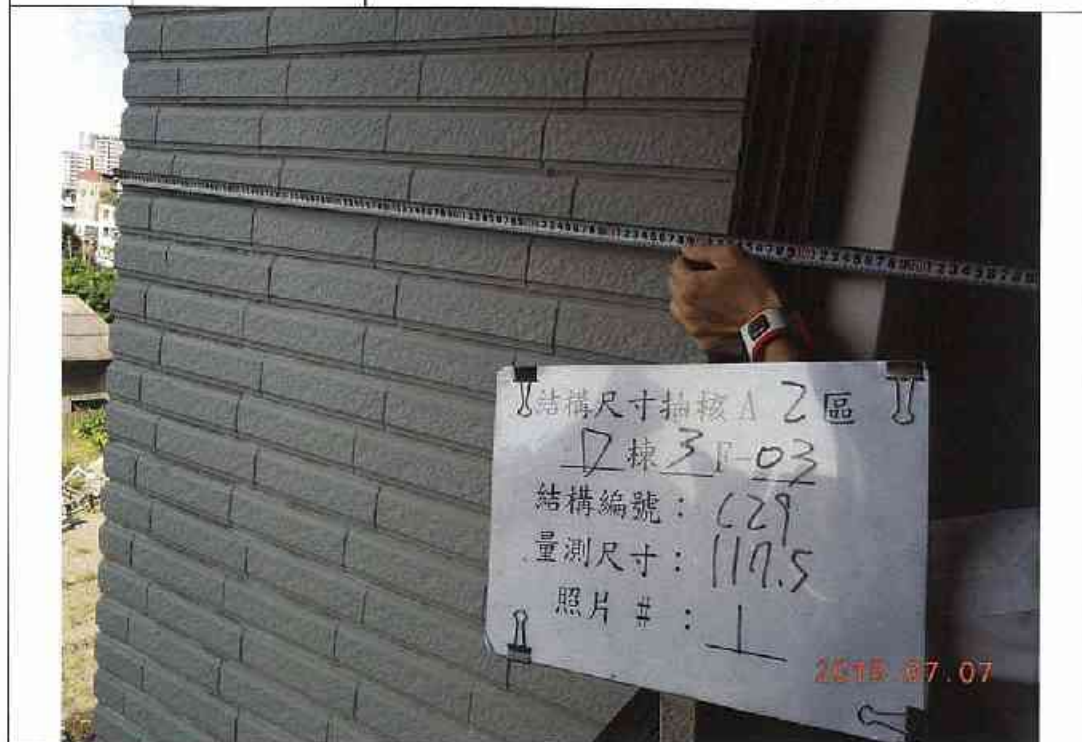 結構尺寸抽核A 2區
D棟3F-03
結構編號：C29
量測尺寸：117.5
照片 #：1